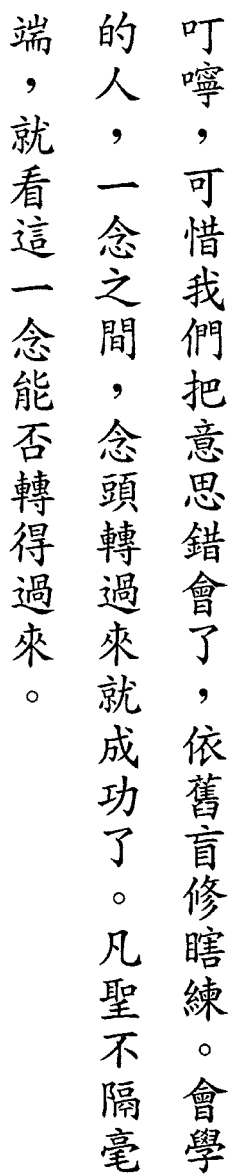 叮嚀，可惜我們把意思錯會了，依舊盲修瞎練。會學
的人，一念之間，念頭轉過來就成功了。凡聖不隔毫
端，就看這一念能否轉得過來。